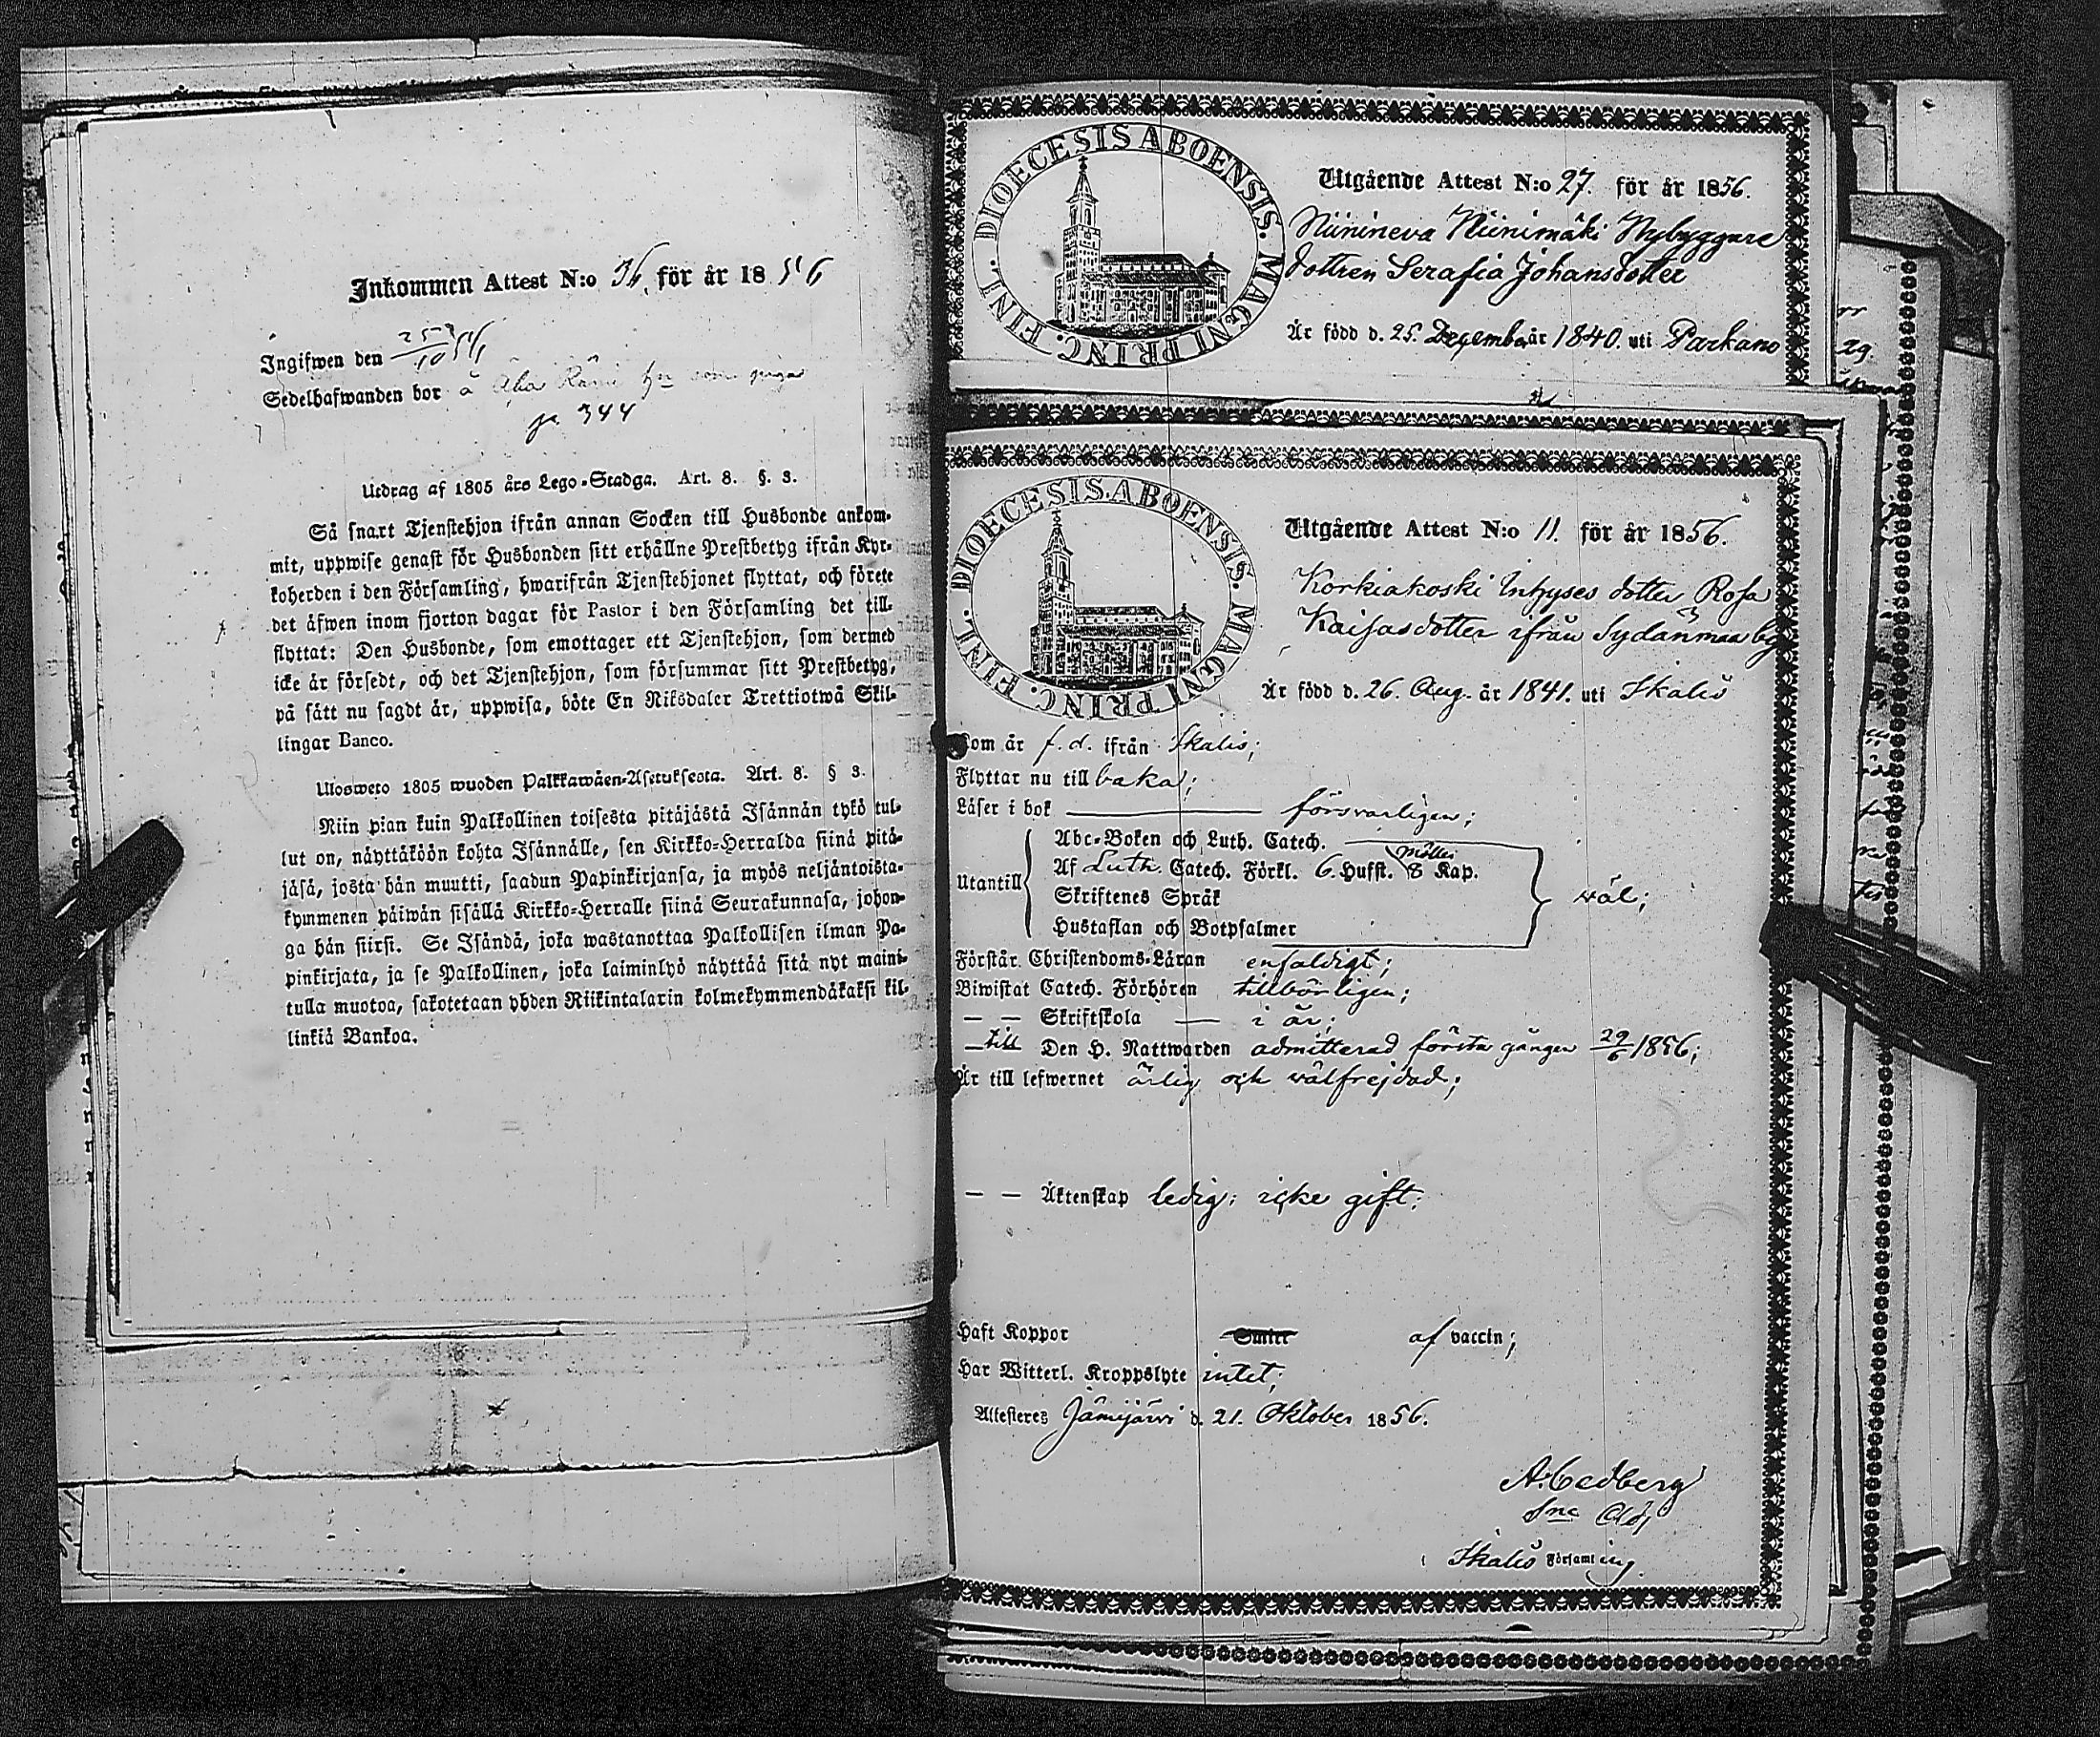 Inkommen Attest N:o 36. för år 1856
Ingifwen den 25/10 56
Sedelhafwanden bor å
p. 344
Utdrag af 1805 års Lego-Stadga. Art. 8. §. 3.
Så snart Tjenstehjon ifrån annan Socken till Husbonde ankom-
mit, uppwise genast för Husbonden sitt erhållne Prestbetyg ifrån Kyr-
koherden i den Församling, hwarifrån Tjenstehjonet flyttat, och förete
det åfwen inom fjorton dagar för Pastor i den Församling det till-
flyttat: Den Husbonde, som emottager ett Tjenstehjon, som dermed
icke är försedt, och det Tjenstehjon, som försummar sitt Prestbetyg,
på sått nu sagdt är, uppwisa, böte En Riksdaler Trettiotwå Skil-
lingar Banco.
Ulosweto 1805 wuoden Palkkawåen-Asetuksesta. Art. 8. § 3.
Niin pian kuin Palkollinen toisesta pitåjåstå Isånnån tykö tul-
lut on, nåyttåköön kohta Isånnålle, sen Kirkko-Herralda siinå pitå-
jåså, josta hån muutti, saadun Papinkirjansa, ja myös neljåntoista-
kymmenen påiwån sisållå Kirkko-Herralle siinå Seurakunnasa, johon-
ga hån siirsi. Se Isåndå, joka wastanottaa Palkollisen ilman Pa-
pinkirjata, ja se Palkollinen, joka laiminlyö nåyttåå sitå nyt maini-
tulla muotoa, sakotetaan yhden Riikintalarin kolmekymmendåkaksi kil-
linkiå Bankoa.
DIOECESIS ABOENSIS. MAGNI PRINC. FINL.
Utgående Attest N:o 27. för år 1856.
Niinineva Niinimäki Nybyggare
dottren Serafia Johansdotter
Är född d. 25. December år 1840. uti Parkano
DIOECESIS ABOENSIS. MAGNI PRINC. FINL.
Utgående Attest N:o 11. för år 1856.
Korkiakoski Inhyses dotter Rosa
Kaisasdotter ifrån Sydänmaa by
Är född d. 26. Aug. år 1841. uti Ikalis
Som är f. d. ifrån Ikalis;
Flyttar nu till baka;
Låser i bok försvarligen;
Utantill
Abc-Boken och Luth. Catech.
Af Luth. Catech. Förkl. 6. Hufst. 8 Kap.
Skriftenes Språk
Hustaflan och Botpsalmer
wäl;
Förstår Christendoms-Låran enfaldigt;
Biwistat Catech. Förhören tillbörligen;
— — Skriftskola — i år;
— till Den H. Nattwarden admitterad första gången 29/6 1856;
Är till lefwernet ärlig och wälfrejdad;
— — Åktenskap ledig; icke gift.
Haft Koppor af vaccin;
Har Witterl. Kroppslyte intet;
Attesteres Jämijärvi d. 21. Oktober 1856.
A. Cedberg
Ikalis Församling.